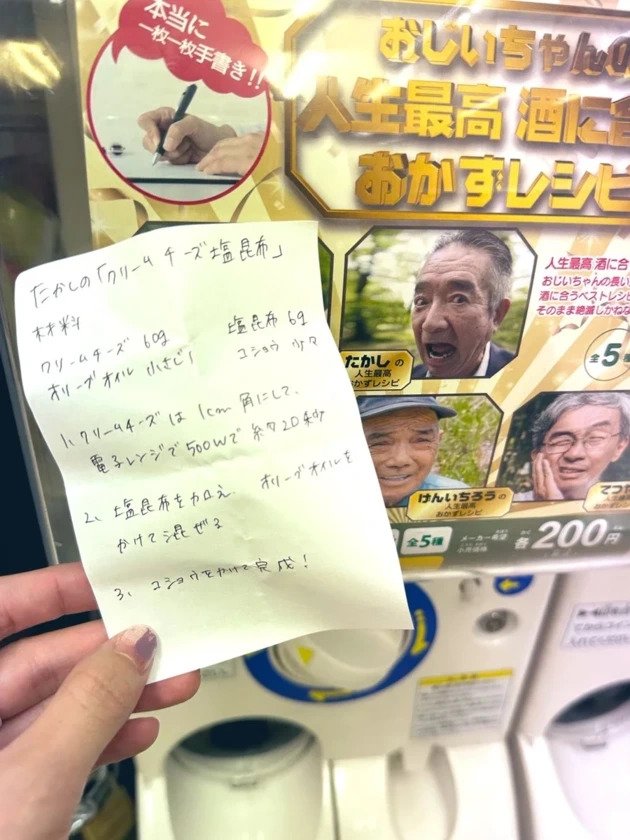 本当に
一枚一枚手書き!!
おじいちゃんの
人生最高 酒に合
おかずレシピ
たかしの「クリームチーズ塩昆布」
材料
クリームチーズ 60g 塩昆布 6g
オリーブオイル 小さじ1 コショウ 少々
1、クリームチーズは1cm角にして、
電子レンジで500Wで約20秒
2、塩昆布を加え、オリーブオイルを
かけて混ぜる
3、コショウをかけて完成!
たかしの
人生最高
おかずレシピ
人生最高 酒に合
おじいちゃんの長い
酒に合うベストレシピ
そのまま絶滅しかねな
全5種
けんいちろうの
人生最高
おかずレシピ
てつ
人生最高
おかずレシピ
全5種 メーカー希望小売価格 各200円